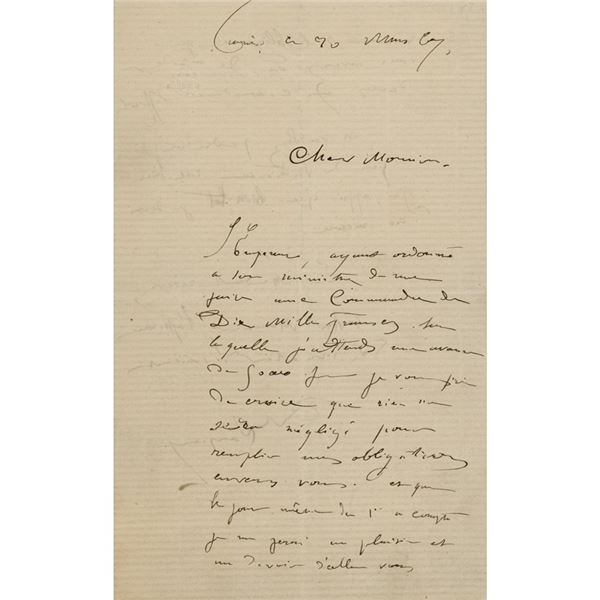 Paris, ce 30 Mars
Cher Monsieur.
L'Empereur, ayant ordonné
a son ministre de me
faire une Commande de
Dix Mille Francs, sur
laquelle j'attends une avance
de 5000 f. je vous prie
de croire que rien ne
sera négligé pour
remplir mes obligations
envers vous. et que
le jour même du 1er a compte
je me ferai un plaisir et
un devoir d'aller vous